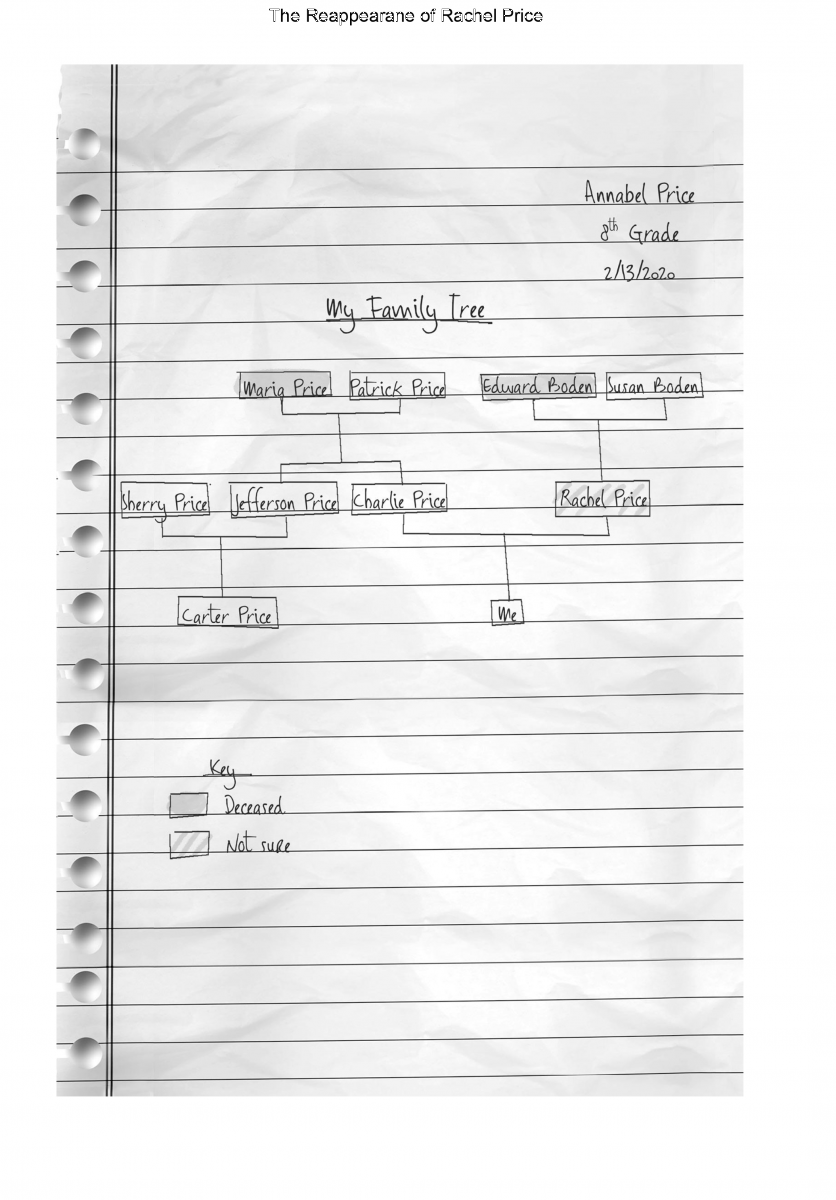 The Reappearane of Rachel Price
Annabel Price
8th Grade
2/13/2020
My Family Tree
Maria Price Patrick Price Edward Boden Susan Boden
Sherry Price Jefferson Price Charlie Price Rachel Price
Carter Price Me
Key
Deceased
Not sure